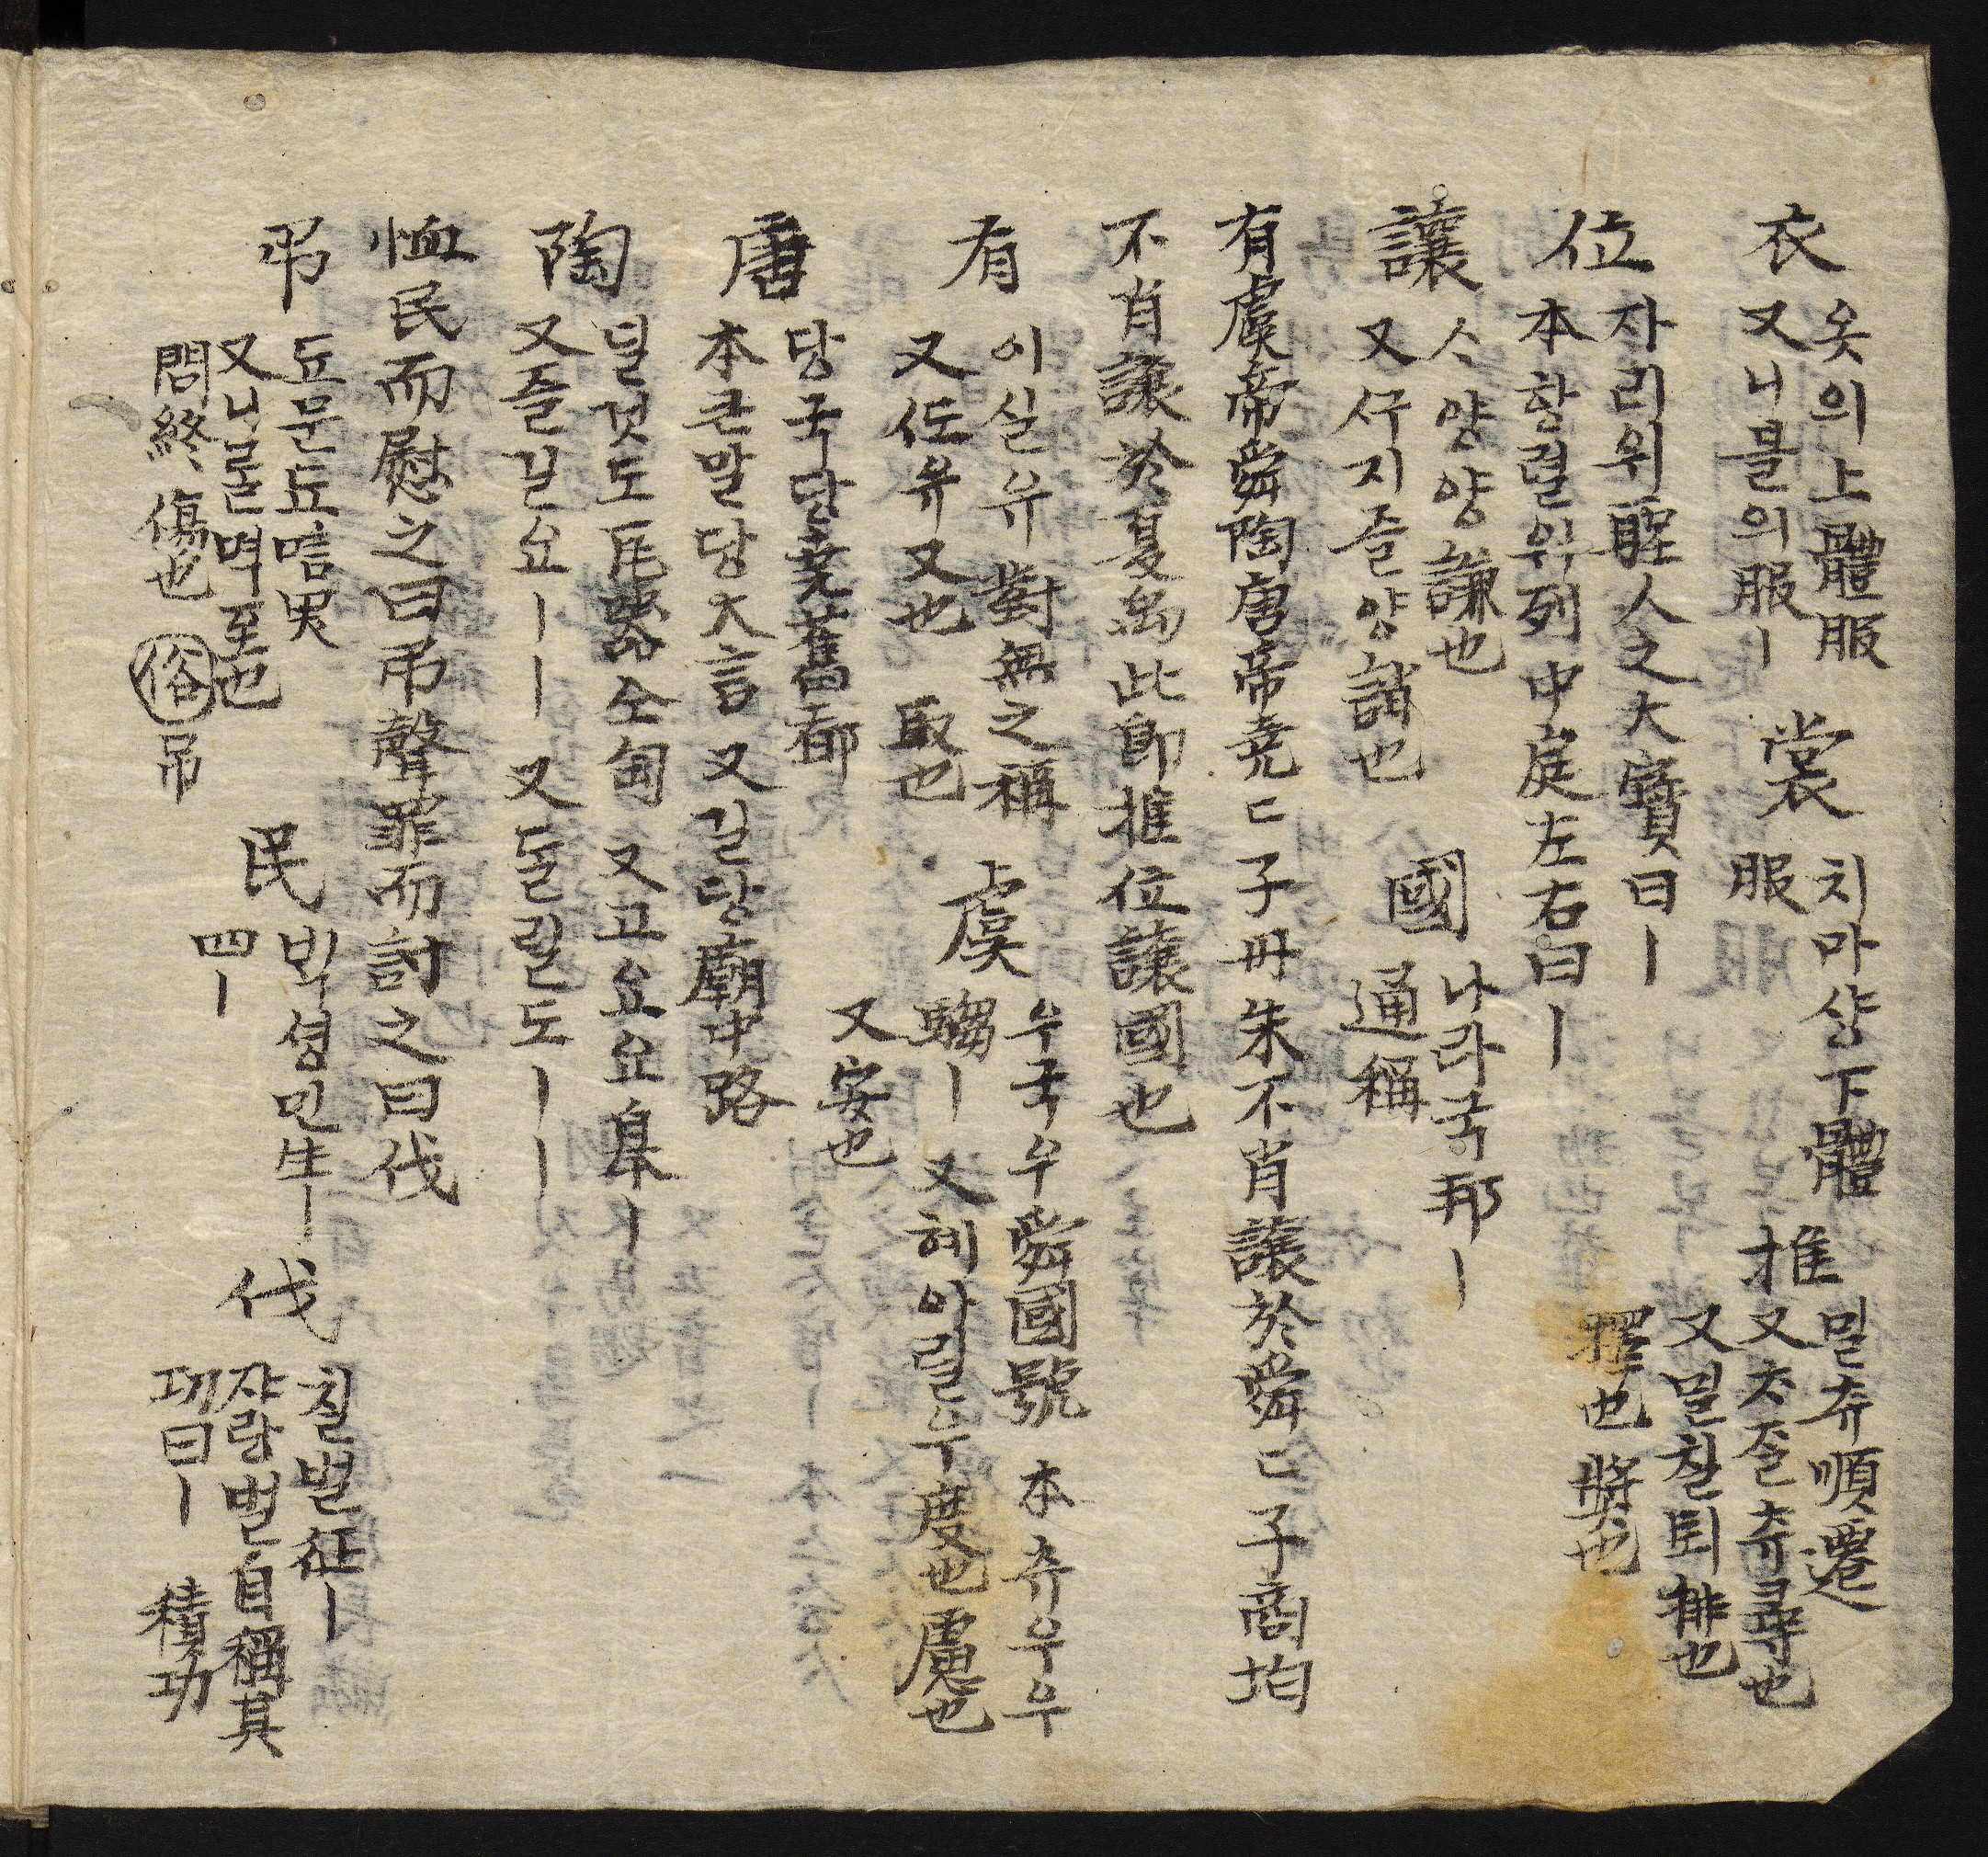 衣 옷의上體服
又니블의服ㅣ
裳 치마샹下體
服
推 밀츄順遷
又츄尋也
又밀칠퇴排也
擇也 獎也
位 자리위聖人之大寶曰ㅣ
本항렬위列中庭左右曰ㅣ
讓 양양謙也
又 양誚也
國 나라국邦ㅣ
通稱
有虞帝舜陶唐帝堯ㄷ子丹朱不肖讓於舜ㄷ子商均
不肖讓於夏禹此卽推位讓國也
有 이실유對無之稱
又 유又也 取也
虞 우국우舜國號 本츄우우
騶ㅣ 又혜아릴우度也 慮也
又安也
唐 당국당堯舊都
本큰말당大言 又길당廟中路
陶 딜것도瓦器 仝匋 又고요요皐ㅣ
又즐길요ㅣㅣ 又돌릴도ㅣㅣ
恤民而慰之曰弔聲罪而討之曰伐
弔 됴문됴唁男
又니를뎍至也
問終 傷也 俗吊
民 빅셩민生ㅣ
四ㅣ
伐 칠벌征ㅣ
쟈랑벌自稱其
功曰ㅣ 積功